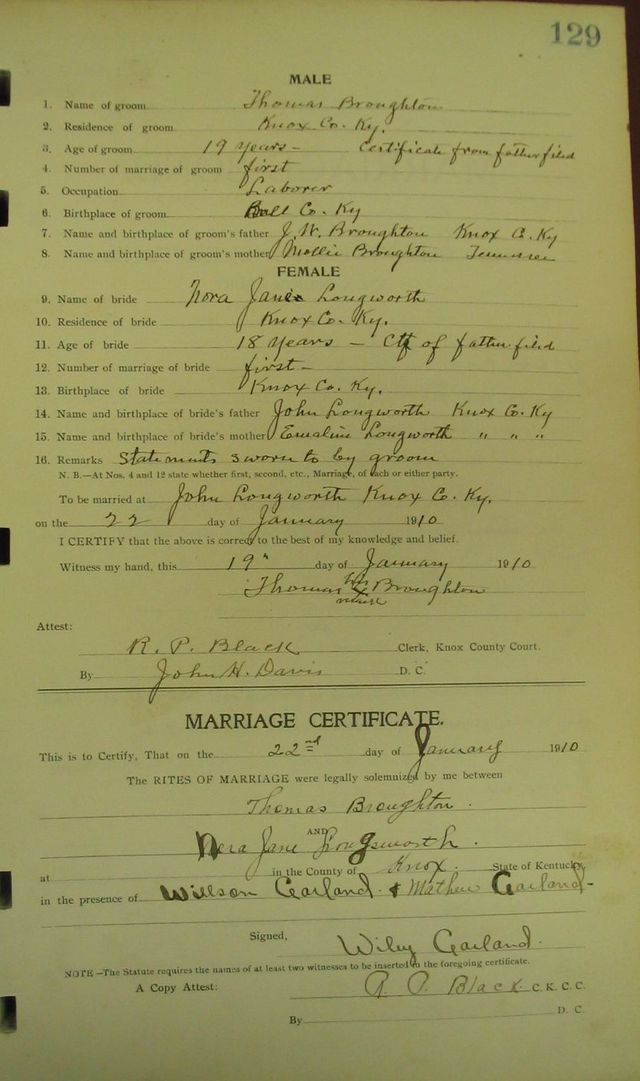 129
MALE
1. Name of groom Thomas Broughton
2. Residence of groom Knox Co. Ky.
3. Age of groom 19 years - Certificate from father filed
4. Number of marriage of groom first
5. Occupation Laborer
6. Birthplace of groom Bell Co. Ky
7. Name and birthplace of groom's father J. W. Broughton Knox C. Ky
8. Name and birthplace of groom's mother Mollie Broughton Tennessee
FEMALE
9. Name of bride Nora Jane Longworth
10. Residence of bride Knox Co. Ky.
11. Age of bride 18 years - Ctf of father filed
12. Number of marriage of bride first -
13. Birthplace of bride Knox Co. Ky.
14. Name and birthplace of bride's father John Longworth Knox Co. Ky
15. Name and birthplace of bride's mother Emaline Longworth " " "
16. Remarks Statements sworn to by groom
N. B.—At Nos. 4 and 12 state whether first, second, etc., Marriage, of each or either party.
To be married at John Longworth Knox Co. Ky.
on the 22 day of January 1910
I CERTIFY that the above is correct to the best of my knowledge and belief.
Witness my hand, this 19" day of January 1910
Thomas his x Broughton
Attest:
R. P. Black Clerk, Knox County Court.
By John H. Davis D. C.
MARRIAGE CERTIFICATE.
This is to Certify, That on the 22nd day of January 1910
The RITES OF MARRIAGE were legally solemnized by me between
Thomas Broughton.
AND
Nora Jane Longsworth.
at in the County of Knox. State of Kentucky,
in the presence of Willson Garland. & Mathew Garland-
Signed, Wiley Garland.
NOTE—The Statute requires the names of at least two witnesses to be inserted in the foregoing certificate.
A Copy Attest: R. P. Black C. K. C. C.
By D. C.